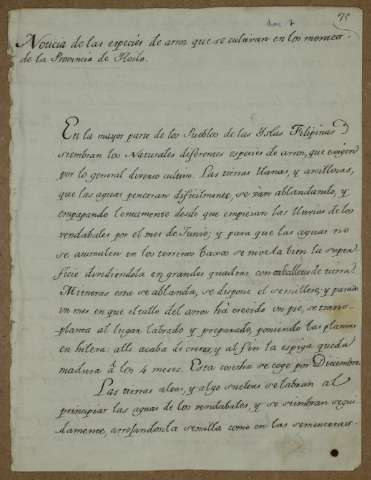 doc. 7
75
Noticia de las especies de arroz que se cultivan en los montes
de la Provincia de Iloilo.
En la mayor parte de los Pueblos de las Yslas Filipinas
siembran los Naturales diferentes especies de arroz, que exigen
por lo general diverso cultivo. Las tierras llanas, y arcillosas,
que las aguas penetran dificilmente, se van ablandando, y
empapando lentamente desde que empiesan las lluvias de los
vendabales por el mes de Junio; y para que las aguas no
se acumulen en los terrenos baxos se nivela bien la super
ficie dividiendola en grandes quadros con caballetes de tierra.
Mientras esta se ablanda, se dispone el semillero; y pasado
un mes en que el tallo del arroz há crecido un pie, se trans-
planta al lugar labrado y preparado, poniendo las plantas
en hilera: alli acaba de crecer, y al fin la espiga queda
madura á los 4 meses. Esta cosecha se coge por Diciembre.
Las tierras altas, y algo sueltas se labran al
principiar las aguas de los vendabales, y se siembran segui
damente, arrojando la semilla como en las sementeras